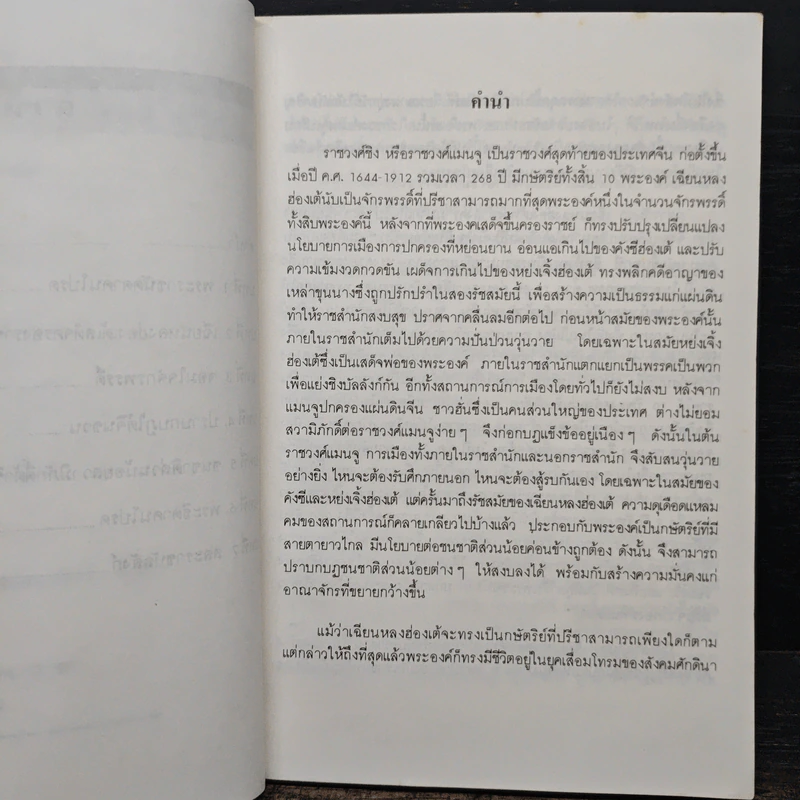 คำนำ
ราชวงศ์ชิง หรือราชวงศ์แมนจู เป็นราชวงศ์สุดท้ายของประเทศจีน ก่อตั้งขึ้น
เมื่อปี ค.ศ. 1644-1912 รวมเวลา 268 ปี มีกษัตริย์ทั้งสิ้น 10 พระองค์ เฉียนหลง
ฮ่องเต้นับเป็นจักรพรรดิ์ที่ปรีชาสามารถมากที่สุดพระองค์หนึ่งในจำนวนจักรพรรดิ์
ทั้งสิบพระองค์นี้ หลังจากที่พระองค์เสด็จขึ้นครองราชย์ ก็ทรงปรับปรุงเปลี่ยนแปลง
นโยบายการเมืองการปกครองที่หย่อนยาน อ่อนแอเกินไปของคังซีฮ่องเต้ และปรับ
ความเข้มงวดกวดขัน เผด็จการเกินไปของหย่งเจิ้งฮ่องเต้ ทรงพลิกคดีอาญาของ
เหล่าขุนนางซึ่งถูกปรักปรำในสองรัชสมัยนี้ เพื่อสร้างความเป็นธรรมแก่แผ่นดิน
ทำให้ราชสำนักสงบสุข ปราศจากคลื่นลมอีกต่อไป ก่อนหน้าสมัยของพระองค์นั้น
ภายในราชสำนักเต็มไปด้วยความปั่นป่วนวุ่นวาย โดยเฉพาะในสมัยหย่งเจิ้ง
ฮ่องเต้ซึ่งเป็นเสด็จพ่อของพระองค์ ภายในราชสำนักแตกแยกเป็นพรรคเป็นพวก
เพื่อแย่งชิงบัลลังก์กัน อีกทั้งสถานการณ์การเมืองโดยทั่วไปก็ยังไม่สงบ หลังจาก
แมนจูปกครองแผ่นดินจีน ชาวฮั่นซึ่งเป็นคนส่วนใหญ่ของประเทศ ต่างไม่ยอม
สวามิภักดิ์ต่อราชวงศ์แมนจูง่ายๆ จึงก่อกบฏแข็งข้ออยู่เนืองๆ ดังนั้นในต้น
ราชวงศ์แมนจู การเมืองทั้งภายในราชสำนักและนอกราชสำนัก จึงสับสนวุ่นวาย
อย่างยิ่ง ไหนจะต้องรับศึกภายนอก ไหนจะต้องสู้รบกันเอง โดยเฉพาะในสมัยของ
คังซีและหย่งเจิ้งฮ่องเต้ แต่ครั้นมาถึงรัชสมัยของเฉียนหลงฮ่องเต้ ความดุเดือดแหลม
คมของสถานการณ์ก็คลายเกลียวไปบ้างแล้ว ประกอบกับพระองค์เป็นกษัตริย์ที่มี
สายตายาวไกล มีนโยบายต่อชนชาติส่วนน้อยค่อนข้างถูกต้อง ดังนั้น จึงสามารถ
ปราบกบฏชนชาติส่วนน้อยต่างๆ ให้สงบลงได้ พร้อมกับสร้างความมั่นคงแก่
อาณาจักรที่ขยายกว้างขึ้น
แม้ว่าเฉียนหลงฮ่องเต้จะทรงเป็นกษัตริย์ที่ปรีชาสามารถเพียงใดก็ตาม
แต่กล่าวให้ถึงที่สุดแล้วพระองค์ก็ทรงมีชีวิตอยู่ในยุคเสื่อมโทรมของสังคมศักดินา